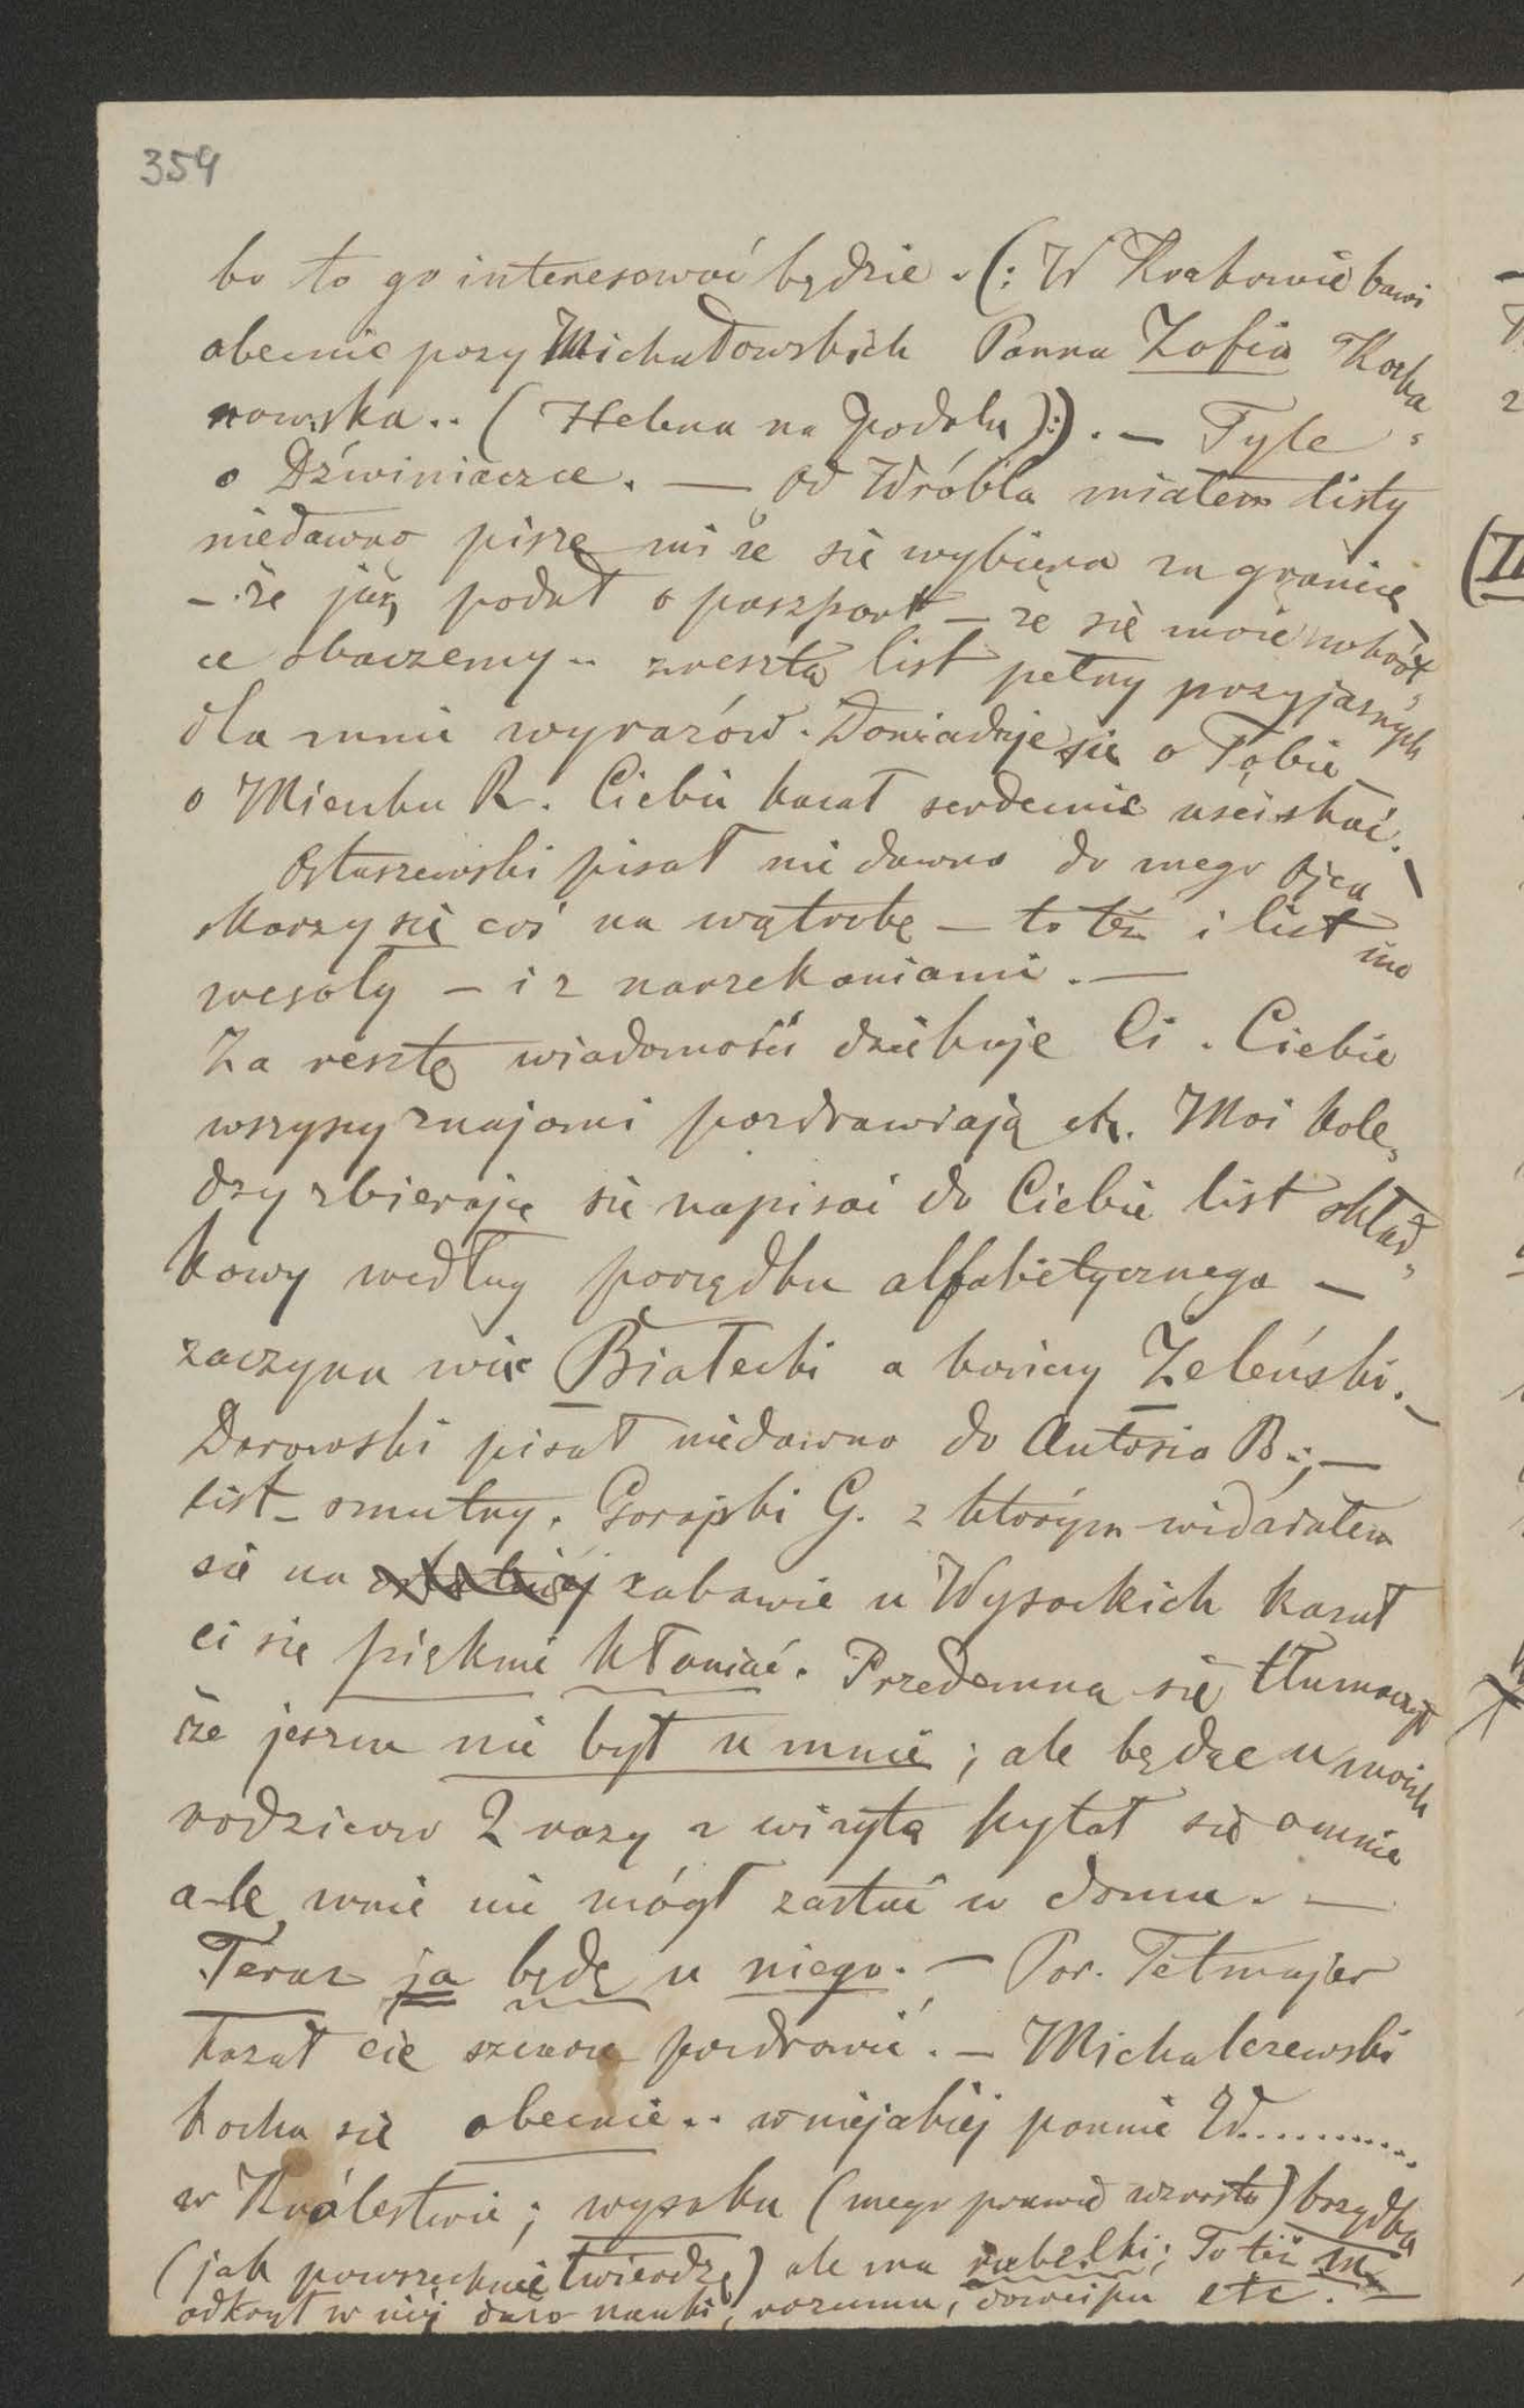 354
bo to go interesować będzie. (: W Krakowie bawi
obecnie przy Michałowskich Panna Zofia Kocha
nowska.. (Helena na Podolu):). — Tyle
o Dźwiniaczce. — Od Wróbla miałem listy
niedawno pisze mi że się wybiera za granicę
— że już podał o paszport — że się może wkrót
ce obaczemy.. zresztą list pełny przyjaznych
dla mnie wyrazów. Dowiaduje się o Tobie
o Mienku R. Ciebie kazał serdecznie uściskać. —
Ostaszewski pisał nie dawno do mego Ojca
skarzy się coś na wątrobę — to też i list
wesoły — i z narzekaniami. —
Za resztę wiadomości dziękuję Ci. Ciebie
wszyscy znajomi pozdrawiają etc. Moi kole„
dzy zbierają się napisać do Ciebie list skład„
kowy według porządku alfabetycznego —
zaczyna więc Białecki a kończy Zeleński. —
Darowski pisał niedawno do Antosia B.; —
list smutny. Gorajski G. z którym widziałem
się na zabawie u Wysockich kazał
ci się pięknie kłaniać. Przedemną się tłumaczył
że jeszcze nie był u mnie; ale będąc u moich
rodziców 2 razy z wizytą pytał się o mnie
ale mnie nie mógł zastać w domu. —
Teraz ja będę u niego. — Por. Tetmajer
kazał cię szczerze pozdrowić. — Michalczewski
kocha się obecnie.. w niejakiej pannie W............
w Królestwie; wysoka (mego prawie wzrostu) brzydka
(jak powszechnie twierdzą) ale ma rubelki; To też
odkrył w niej dużo nauki, rozumu, dowcipu etc. —
(II